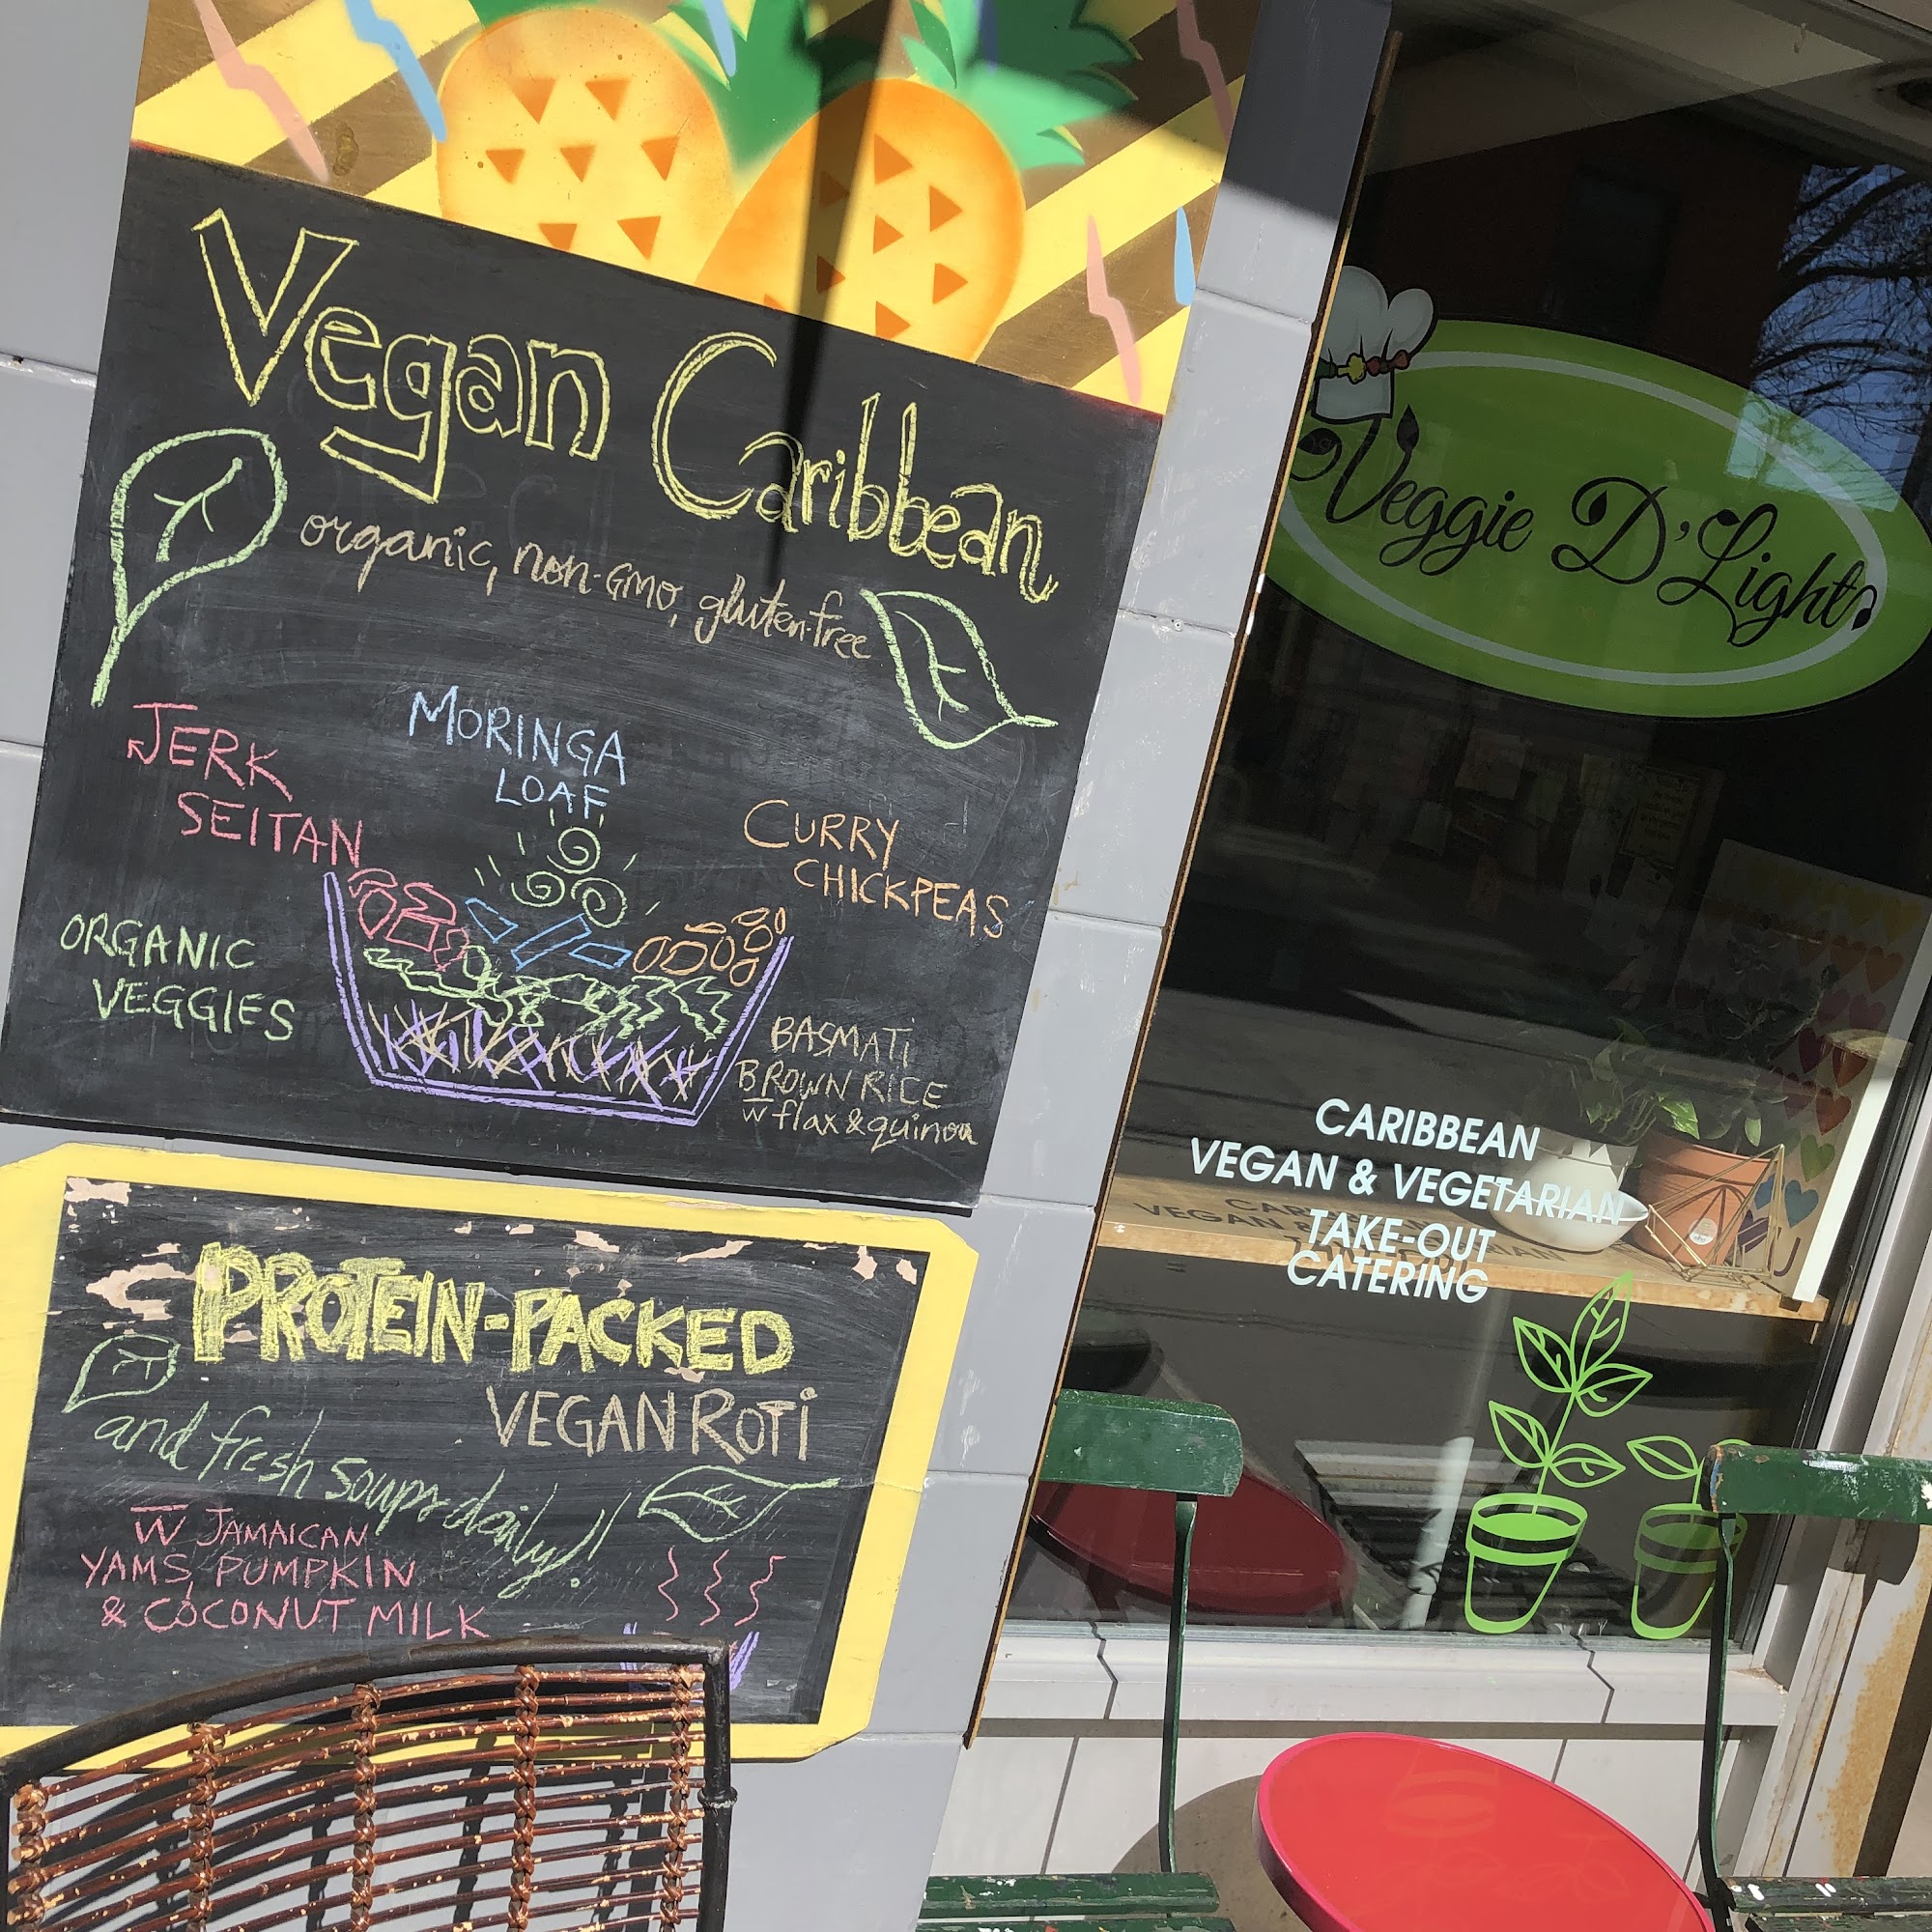 Vegan Caribbean
organic, non-GMO, gluten-free
JERK
SEITAN
MORINGA
LOAF
CURRY
CHICKPEAS
ORGANIC
VEGGIES
BASMATi
BROWN RICE
w̅ flax & quinoa
PROTEIN-PACKED
VEGAN ROTi
and fresh soups daily!!
w̅ JAMAICAN
YAMS, PUMPKIN
& COCONUT MILK
Veggie D'Light
CARIBBEAN
VEGAN & VEGETARIAN
TAKE-OUT
CATERING